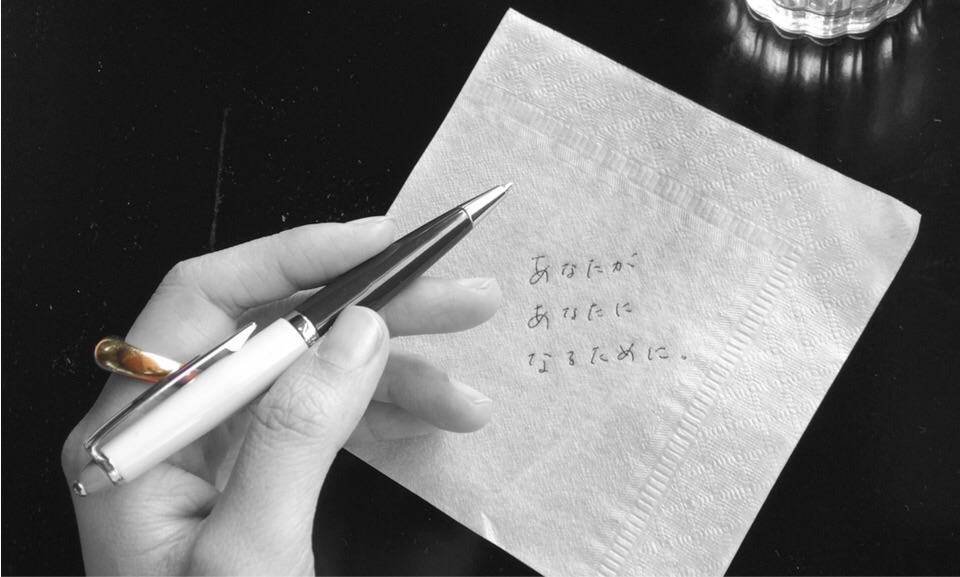 あなたが
あなたに
なるために。